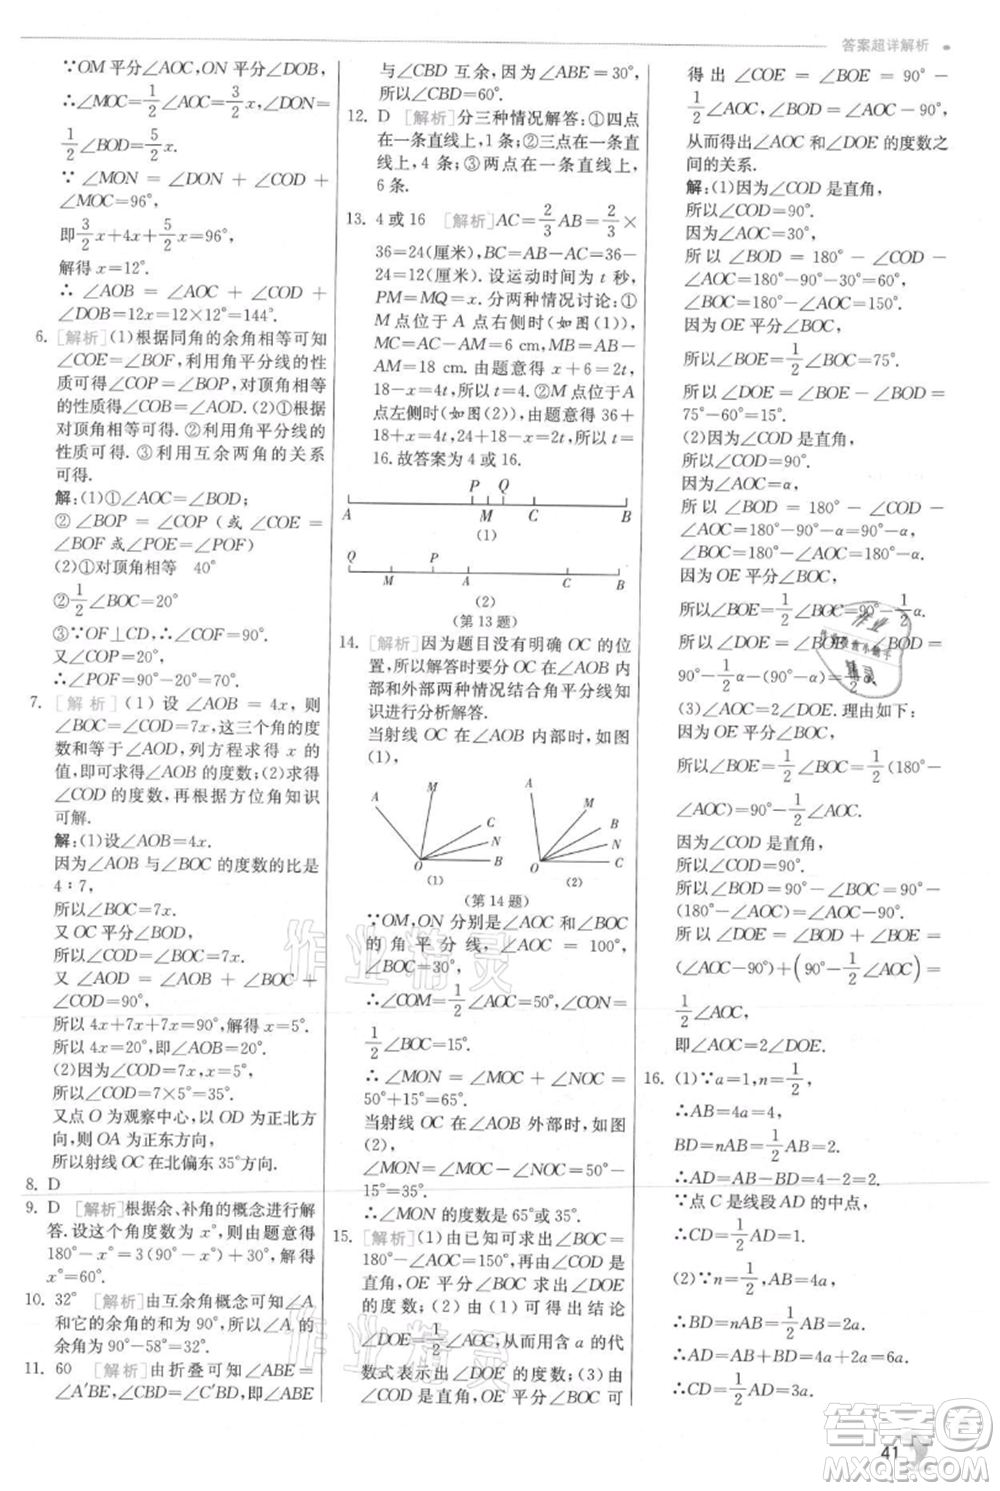 答案超详解析
∵OM平分∠AOC,ON平分∠DOB,
∴∠MOC=1/2∠AOC=3/2x,∠DON=
1/2∠BOD=5/2x.
∵ ∠MON = ∠DON + ∠COD +
∠MOC=96°,
即3/2x+4x+5/2x=96°,
解得x=12°.
∴ ∠AOB = ∠AOC + ∠COD +
∠DOB=12x=12×12°=144°.
6. [解析](1)根据同角的余角相等可知
∠COE=∠BOF,利用角平分线的性
质可得∠COP=∠BOP,对顶角相等
的性质可得∠COB=∠AOD.(2)①根据
对顶角相等可得.②利用角平分线的
性质可得.③利用互余两角的关系
可得.
解:(1)①∠AOC=∠BOD;
② ∠BOP = ∠COP (或 ∠COE =
∠BOF或∠POE=∠POF)
(2)①对顶角相等 40°
②1/2∠BOC=20°
③∵OF⊥CD,∴∠COF=90°.
又∠COP=20°,
∴∠POF=90°-20°=70°.
7. [解析] (1) 设 ∠AOB = 4x, 则
∠BOC=∠COD=7x,这三个角的度
数和等于∠AOD,列方程求得x的
值,即可求得∠AOB的度数;(2)求得
∠COD的度数,再根据方位角知识
可解.
解:(1)设∠AOB=4x.
因为∠AOB与∠BOC的度数的比是
4∶7,
所以∠BOC=7x.
又OC平分∠BOD,
所以∠COD=∠BOC=7x.
又 ∠AOD = ∠AOB + ∠BOC +
∠COD=90°,
所以4x+7x+7x=90°,解得x=5°.
所以4x=20°,即∠AOB=20°.
(2)因为∠COD=7x,x=5°,
所以∠COD=7×5°=35°.
又点O为观察中心,以OD为正北方
向,则OA为正东方向,
所以射线OC在北偏东35°方向.
8. D
9. D [解析]根据余、补角的概念进行解
答.设这个角度数为x°,则由题意得
180°-x°=3(90°-x°)+30°,解得
x°=60°.
10. 32° [解析]由互余角概念可知∠A
和它的余角和为90°,所以∠A的
余角为90°-58°=32°.
11. 60 [解析]由折叠可知∠ABE=
∠A′BE,∠CBD=∠C′BD,即∠ABE
与∠CBD互余,因为∠ABE=30°,
所以∠CBD=60°.
12. D [解析]分三种情况解答:①四点
在一条直线上,1条;②三点在一条
直线上,4条;③两点在一条直线上,
6条.
13. 4或16 [解析]AC=2/3AB=2/3×
36=24(厘米),BC=AB-AC=36-
24=12(厘米).设运动时间为t秒,
PM=MQ=x.分两种情况讨论:①
M点位于A点右侧时(如图(1)),
MC=AC-AM=6 cm,MB=AB-
AM=18 cm.由题意得x+6=2t,
18-x=4t,所以t=4.②M点位于A
点左侧时(如图(2)),由题意得36+
18+x=4t,24+18-x=2t,所以t=
16.故答案为4或16.
P Q
A M C B
(1)
Q P
M A C B
(2)
(第13题)
14. [解析]因为题目没有明确OC的位
置,所以解答时要分OC在∠AOB内
部和外部两种情况结合角平分线知
识进行分析解答.
当射线OC在∠AOB内部时,如图
(1),
A M C N B O
(1)
M A B N C O
(2)
(第14题)
∵OM,ON分别是∠AOC和∠BOC
的角平分线,∠AOC=100°,
∠BOC=30°,
∴∠COM=1/2∠AOC=50°,∠CON=
1/2∠BOC=15°.
∴ ∠MON = ∠MOC + ∠NOC =
50°+15°=65°.
当射线OC在∠AOB外部时,如图
(2),
∠MON=∠MOC-∠NOC=50°-
15°=35°.
∴∠MON的度数是65°或35°.
15. [解析](1)由已知可求出∠BOC=
180°-∠AOC=150°,再由∠COD
是直角,OE平分∠BOC求出∠DOE
的度数;(2)由(1)可得出结论
∠DOE=1/2∠AOC,从而用含α的代
数式表示出∠DOE的度数;(3)因为
∠COD是直角,OE平分∠BOC可
得出∠COE=∠BOE=90°-
1/2∠AOC,∠BOD=90°-∠AOC,
从而得出∠AOC和∠DOE的度数之
间的关系.
解:(1)因为∠COD是直角,
所以∠COD=90°.
因为∠AOC=30°,
所以∠BOD=180°-∠COD-
∠AOC=180°-90°-30°=60°.
∠BOC=180°-∠AOC=150°.
因为OE平分∠BOC,
所以∠BOE=1/2∠BOC=75°.
所以∠DOE=∠BOE-∠BOD=
75°-60°=15°.
(2)因为∠COD是直角,
所以∠COD=90°.
因为∠AOC=α,
所以∠BOD=180°-∠COD-
∠AOC=180°-90°-α=90°-α.
∠BOC=180°-∠AOC=180°-α.
因为OE平分∠BOC,
所以∠BOE=1/2∠BOC=90°-1/2α.
所以∠DOE=∠BOE-∠BOD=
90°-1/2α-(90°-α)=1/2α.
(3)∠AOC=2∠DOE.理由如下:
因为OE平分∠BOC,
所以∠BOE=1/2∠BOC=1/2(180°-
∠AOC)=90°-1/2∠AOC.
因为∠COD是直角,
所以∠BOD=90°-∠AOC.
所以∠DOE=∠BOE-∠BOD=
(90°-1/2∠AOC)-(90°-∠AOC)=
1/2∠AOC,
即∠AOC=2∠DOE.
16. (1)∵a=1,n=1/2,
∴AB=4a=4,
BD=nAB=1/2AB=2.
∴AD=AB-BD=4-2=2.
∵点C是线段AD的中点,
∴CD=1/2AD=1.
(2)∵n=1/2,AB=4a,
∴BD=nAB=1/2AB=2a.
∴AD=AB+BD=6a.
∴CD=1/2AD=3a.
作业精灵
作业精灵
答案圈
MXQE.COM
41